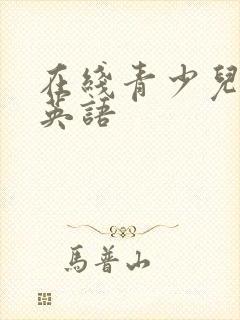 在綫青少兒
英語
馬普山